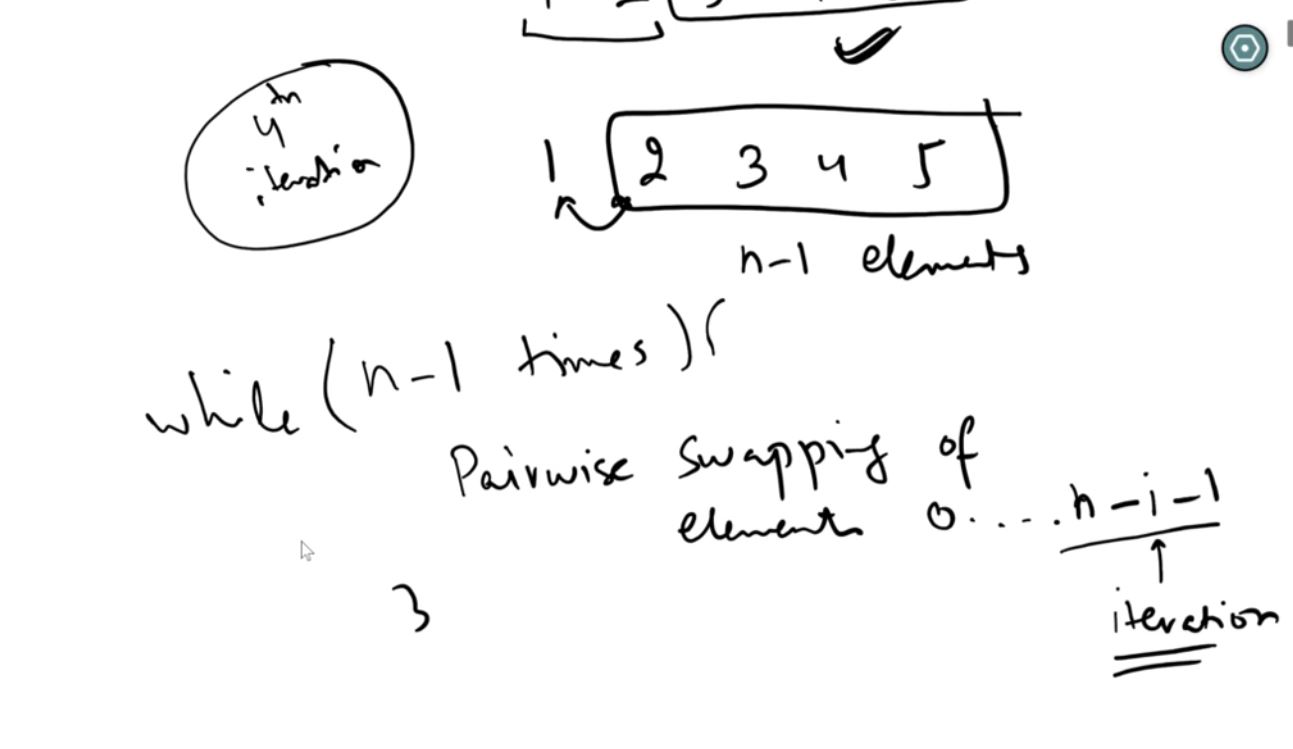 4th
iteration
1 2 3 4 5
n-1 elements
while (n-1 times) {
Pairwise swapping of
elements 0.....n-i-1
iteration
}